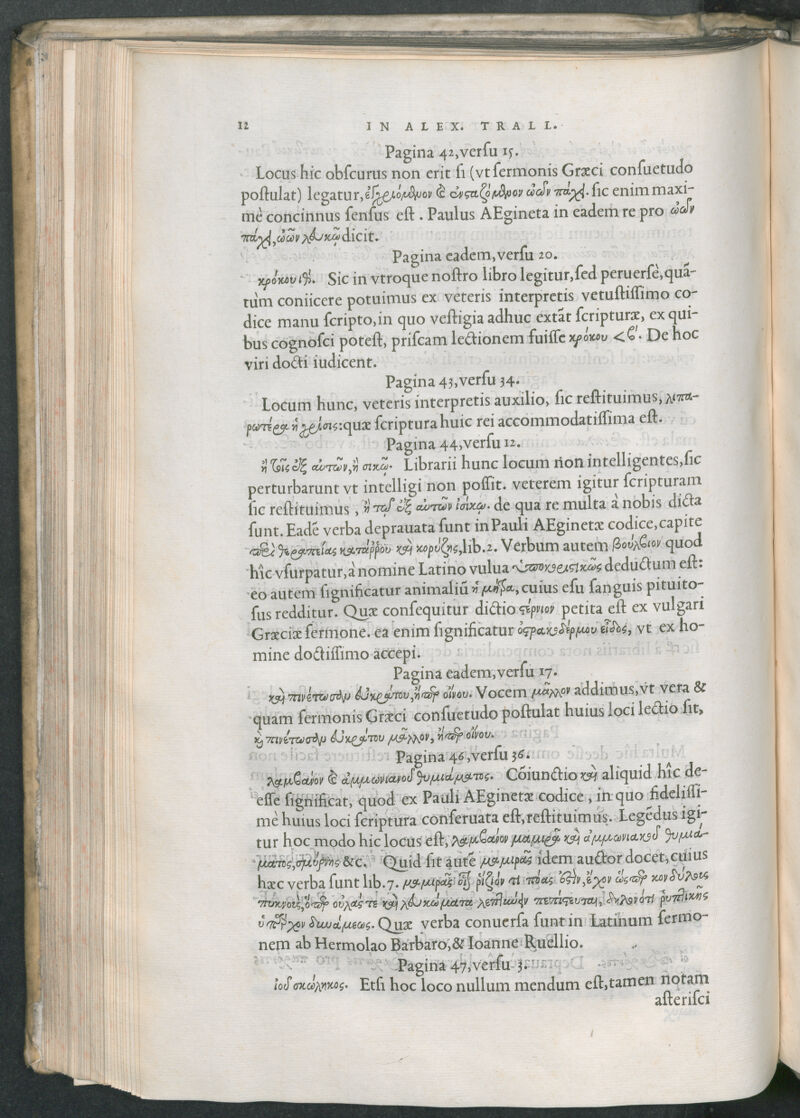 12 IN ALEX. TRALL.
Pagina 42,verſu 15.
Locus hic obſcurus non erit ſi (vt ſermonis Græci conſuetudo
poſtulat) legatur, ὠῶν πάχῃ. ſic enim maxi-
mè concinnus ſenſus eſt. Paulus AEgineta in eadem re pro ὠῶν
πάχῃ,ὠῶν λευκῷ dicit.
Pagina eadem,verſu 20.
κρόκου ιθ. Sic in vtroque noſtro libro legitur,ſed peruerſè,quã-
tùm coniicere potuimus ex veteris interpretis vetuſtiſſimo co-
dice manu ſcripto,in quo veſtigia adhuc extãt ſcripturæ, ex qui-
bus cognoſci poteſt, priſcam lectionem fuiſſe κρόκου De hoc
viri docti iudicent.
Pagina 43,verſu 34.
Locum hunc, veteris interpretis auxilio, ſic reſtituimus, λιπα-
ρωτέρα ἡ χρίσις:quæ ſcriptura huic rei accommodatiſſima eſt.
Pagina 44,verſu 12.
ἢ τοῖς ἐξ αὐτῶν,ἢ σικῷ. Librarii hunc locum non intelligentes,ſic
perturbarunt vt intelligi non poſſit. veterem igitur ſcripturam
ſic reſtituimus , ἢ τῷ ἐξ αὐτῶν ἰσίκῳ. de qua re multa à nobis dicta
ſunt. Eadẽ verba deprauata ſunt in Pauli AEginetæ codice,capite
περὶ θεραπείας κατάῤῥου καὶ κορύζης,lib.2. Verbum autem βουλβιον quod
hîc vſurpatur,à nomine Latino vulua ὑποκοριστικῶς deductum eſt:
eo autem ſignificatur animaliũ ἡ μήτρα, cuius eſu ſanguis pituito-
ſus redditur. Quæ conſequitur dictio στέρνιον petita eſt ex vulgari
Græciæ ſermone. ea enim ſignificatur ὀστρακοδέρμου εἶδος, vt ex ho-
mine doctiſſimo accepi.
Pagina eadem,verſu 17.
καὶ πινέτωσαν εὐκράτου,ἤπερ οἴνου. Vocem μᾶλλον addimus,vt vera &
quam ſermonis Græci conſuetudo poſtulat huius loci lectio ſit,
καὶ πινέτωσαν εὐκράτου μᾶλλον, ἤπερ οἴνου.
Pagina 46,verſu 36.
λαμβανον ἐ ἀμμωνιανοῦ θυμιάματος. Cõiunctio καὶ aliquid hîc de-
eſſe ſignificat, quod ex Pauli AEginetæ codice , in quo fideliſſi-
mè huius loci ſcriptura conſeruata eſt,reſtituimus. Legẽdus igi-
tur hoc modo hic locus eſt, λαμβανον μαμιρᾶ καὶ ἀμμωνιακοῦ θυμιά-
ματος,σμύρνης &c. Quid ſit autẽ μαμιρᾶς idem auctor docet,cuius
hæc verba ſunt lib.7. μαμιρᾶς οἷον ῥίζιόν τι πόας ἐστὶν,ἔχον ὥσπερ κονδύλους
πυκνοὺς,ὅπερ οὐλάς τε καὶ λευκώματα λεπτύνειν πεπίστευται, δηλονότι ῥυπτικῆς
ὑπάρχον δυνάμεως. Quæ verba conuerſa ſunt in Latinum ſermo-
nem ab Hermolao Barbaro,& Ioanne Ruellio.
Pagina 47,verſu 3.
ἰοῦ σκώληκος. Etſi hoc loco nullum mendum eſt,tamen notam
aſteriſci